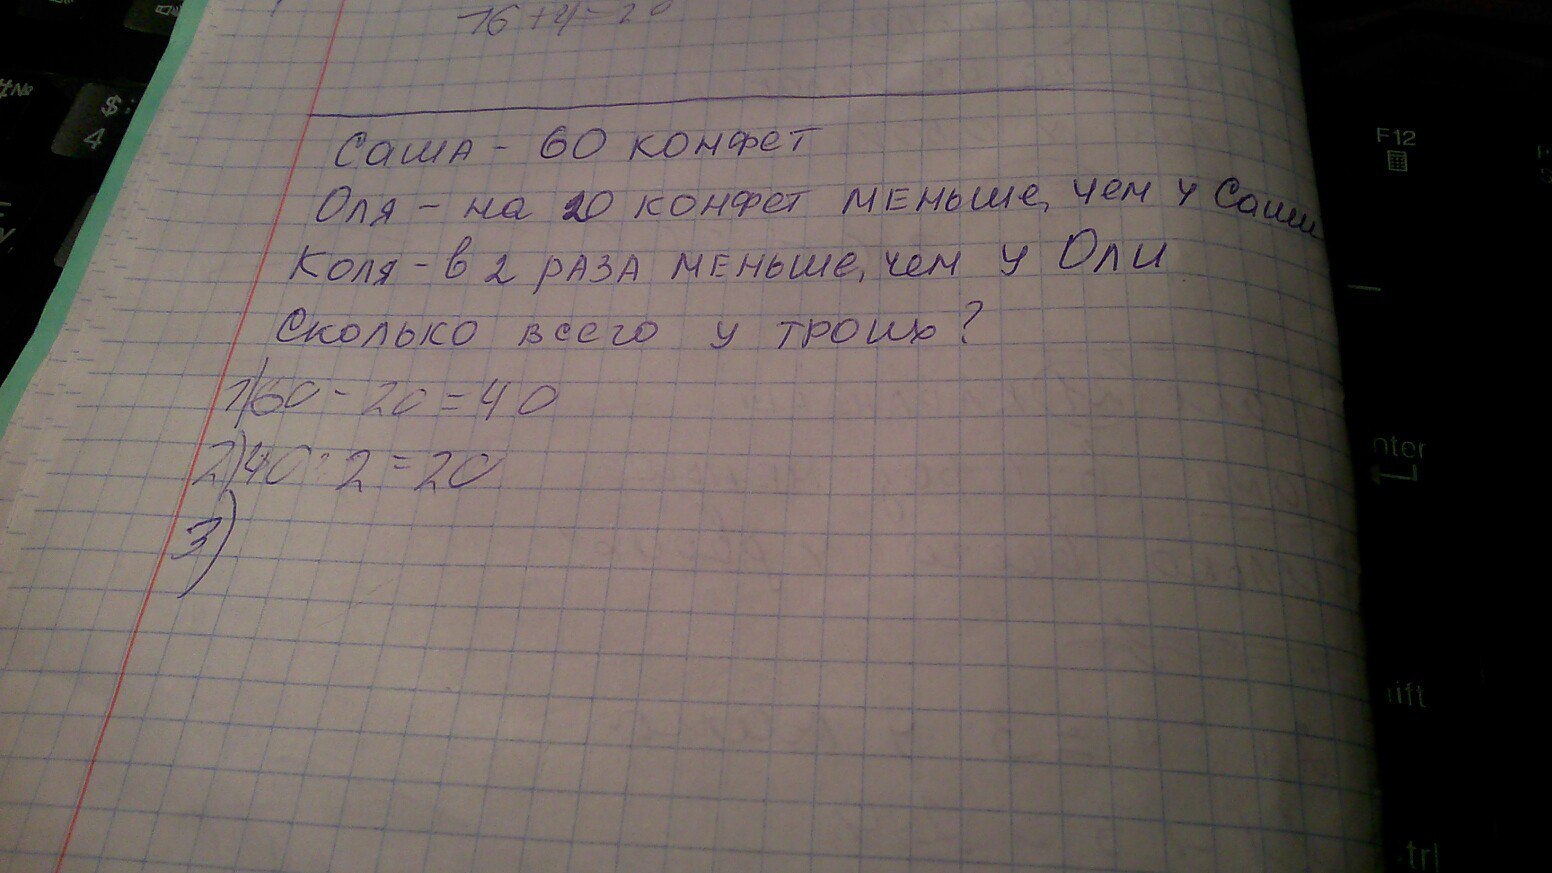 16+4=20
Саша - 60 конфет
Оля - на 20 конфет меньше, чем у Саши
Коля - в 2 раза меньше, чем у Оли
Сколько всего у троих?
1) 60 - 20 = 40
2) 40 : 2 = 20
3)
#№
$;
4
F12
nter
hift
trl